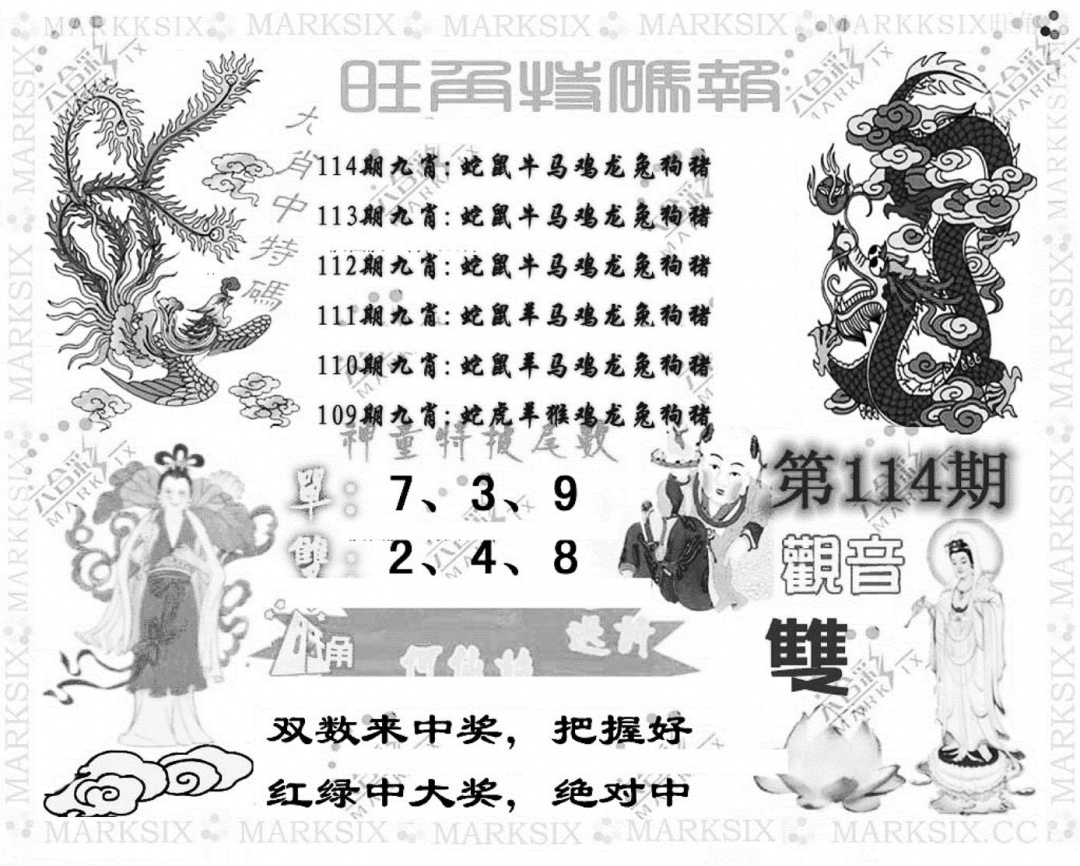 MARKKSIX MARKSIX MARKSIX MARKSIX MARKKSIX
旺角特碼報
九肖中特碼
114期九肖:蛇鼠牛马鸡龙兔狗猪
113期九肖:蛇鼠牛马鸡龙兔狗猪
112期九肖:蛇鼠牛马鸡龙兔狗猪
111期九肖:蛇鼠羊马鸡龙兔狗猪
110期九肖:蛇鼠羊马鸡龙兔狗猪
109期九肖:蛇虎羊猴鸡龙兔狗猪
神童特披尾數
單: 7、3、9
雙: 2、4、8
第114期
觀音
雙
双数来中奖，把握好
红绿中大奖，绝对中
MARKSIX MARKSIX MARKSIX MARKSIX MARKSIX.CC